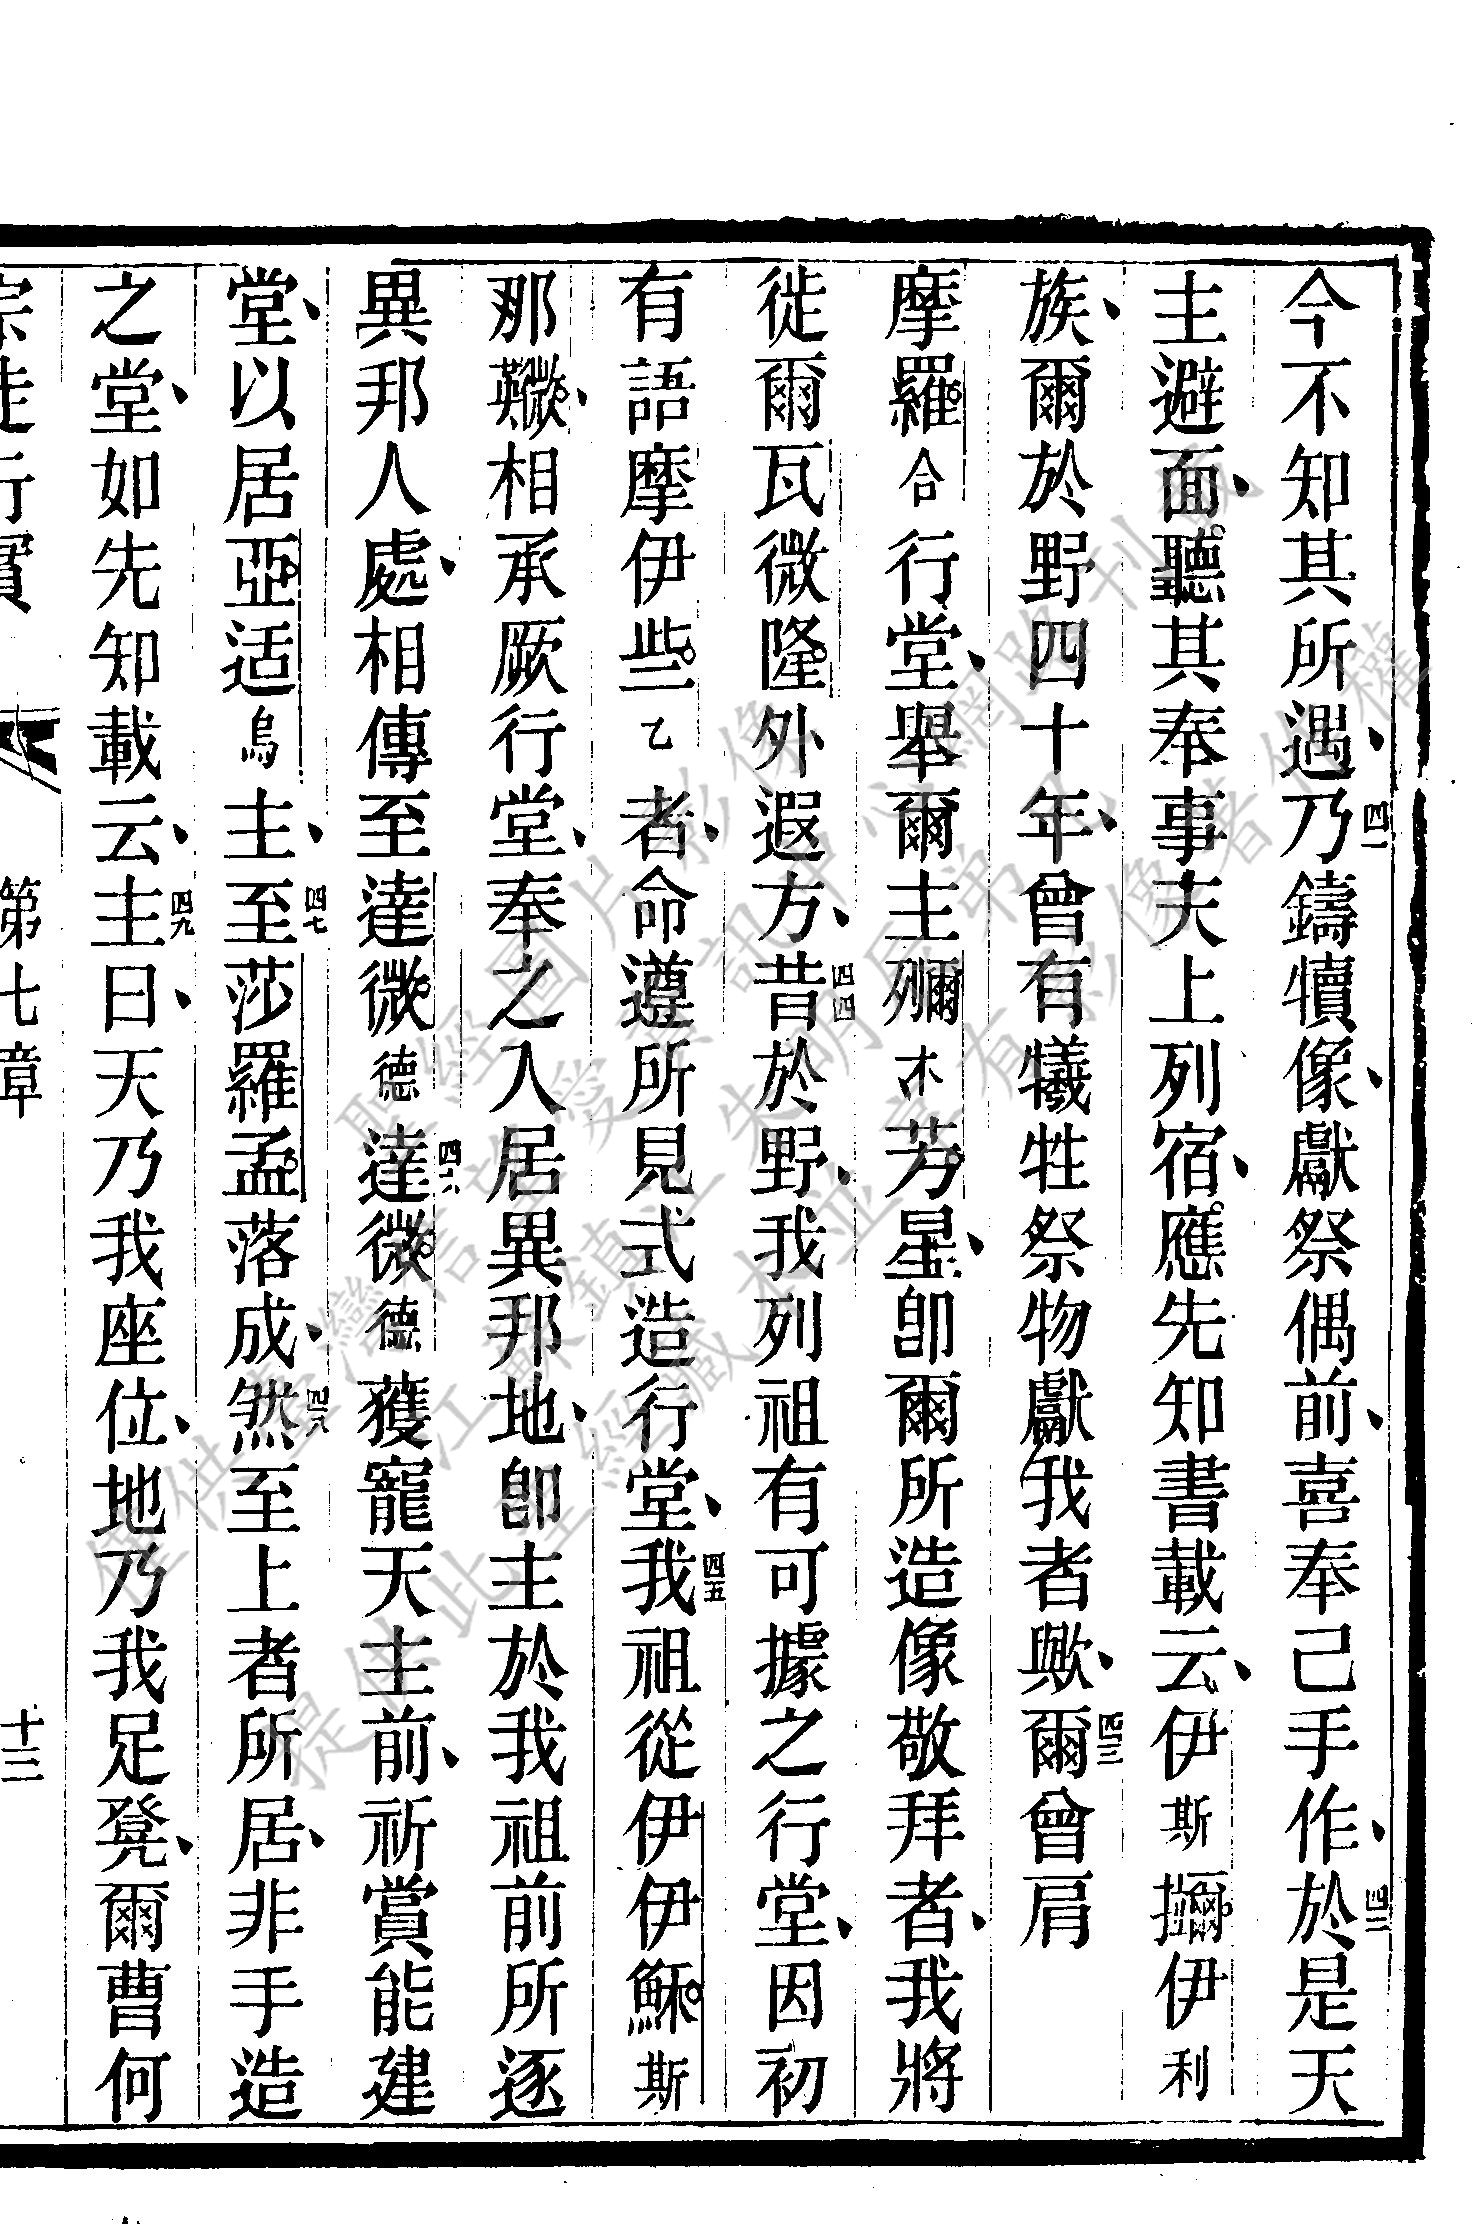 今不知其所遇、四一乃鑄犢像、獻祭偶前、喜奉己手作、四二於是天
主避面、聽其奉事天上列宿、應先知書載云、伊斯𡭗伊利
族、爾於野四十年、曾有犧牲祭物獻我者歟、四三爾曾肩
摩羅合行堂、舉爾主䃼木芳星、卽爾所造像敬拜者、我將
徙爾瓦微隆外遐方、四四昔於野、我列祖有可據之行堂、因初
有語摩伊些乙者、命遵所見式造行堂、四五我祖從伊伊穌斯
那相承厥行堂、奉之入居異邦地、卽主於我祖前所逐
異邦人處、相傳至達微德四六達微德獲寵天主前、祈賞能建
堂、以居亞适烏主、四七至莎羅孟落成、四八然至上者所居、非手造
之堂、如先知載云、四九主曰、天乃我座位、地乃我足凳、爾曹何
宗徒行實 第七章 十三